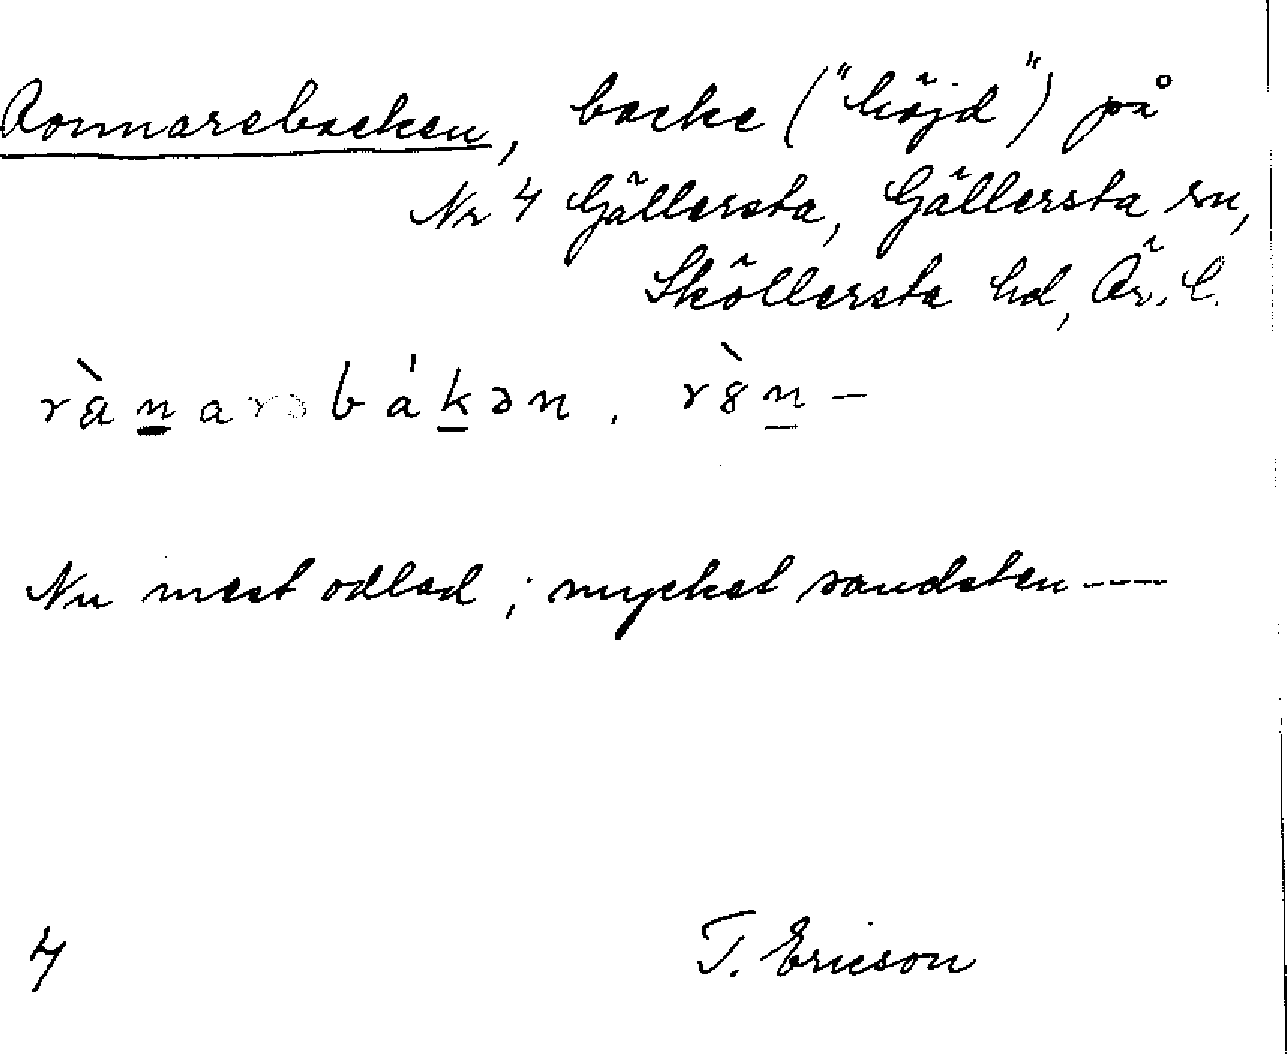 Ronnarebacken, backe ("höjd") på
Nr 4 Gällersta, Gällersta sn,
Sköllersta hd, Ör. l.
rànarəbákən. rò̀n—
Nu mest odlad; mycket sandsten ---
4 T. Ericson